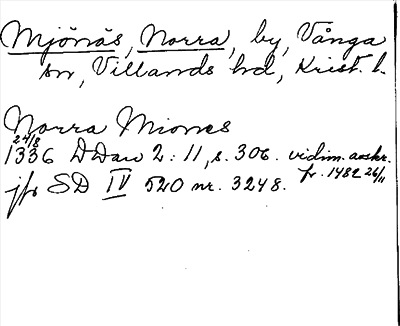 Mjönäs, Norra, by, Vånga
sn, Villands hd, Krist. l.
Norra Miones
24/8
1336 DDan 2: 11, s. 306. vidim. avskr.
fr. 1482 26/11
jfr SD IV 520 nr. 3248.